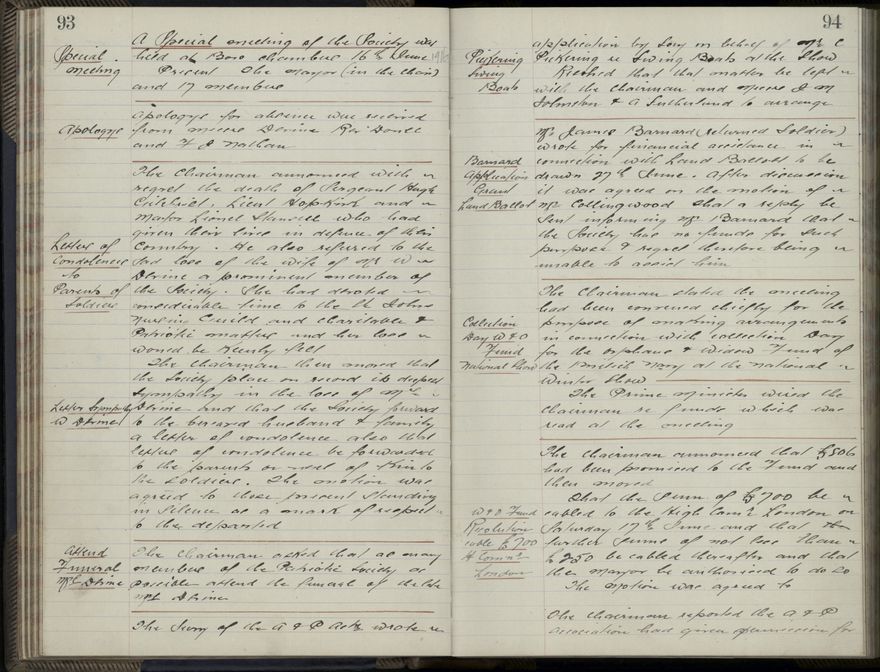 93
Special meeting
A Special meeting of the Society was
held at Boro Chambers 16th June 1916
Present The Mayor (in the Chair)
and 17 members
Apologys
Apologys for absence was received
from Messrs Devine Rev Doull
and F J Nathan
The Chairman announced with
regret the death of Sergeant Hugh
Lieut Hopkirk and
Major Lionel who had
given their lives in defence of their
Letter of
Condolence
to
Parents of
Soldiers
Country. He also referred to the
sad loss of the wife of Mr W
Devine a prominent member of
the Society. She had devoted
considerable time to the St Johns
Nursing Guild and charitable &
Patriotic matters and her loss
would be keenly felt
The Chairman then moved that
the Society place on record its deepest
sympathy in the loss of Mrs
Letter Sympathy
W Devine
Devine and that the Society forward
to the bereaved husband & family
a letter of condolence also that
letters of condolence be forwarded
to the parents or next of kin to
the soldiers. The motion was
agreed to those present standing
in silence as a mark of respect
to the departed
Attend
Funeral
Mrs Devine
The Chairman asked that as many
members of the Patriotic Society as
possible attend the funeral of the late
Mrs Devine
The Secy of the A & P Assn wrote re
94
Pickering
Swing
Boats
application by Levy on behalf of Mr C
Pickering re Swing Boats at the Show
Resolved that that matter be left
with the Chairman and Messrs J M
Johnston & A Sutherland to arrange
Barnard
Application
Grant
Land Ballot
Mr James Barnard (returned Soldier)
wrote for financial assistance in
connection with Land Ballots to be
drawn 27th June. After discussion
it was agreed on the motion of
Mr Collingwood that a reply be
sent informing Mr Barnard that
the Society has no funds for such
purpose & regret therefore being
unable to assist him
Collection
Day W & O
Fund
National Show
The Chairman stated the meeting
had been convened chiefly for the
purpose of making arrangements
in connection with collection Day
for the Orphans & Widows Fund of
the British Navy at the National
Winter Show
The Prime Minister wired the
Chairman re funds which was
read at the meeting
The Chairman announced that £506
had been promised to the Fund and
then moved
W & O Fund
Resolution
cable £700
H Comr
London
That the sum of £700 be
cabled to the High Comr London on
Saturday 17th June and that
further sums of not less than
£250 be cabled thereafter and that
the Mayor be authorised to do so
The motion was agreed to
The Chairman reported the A & P
Association had given permission for